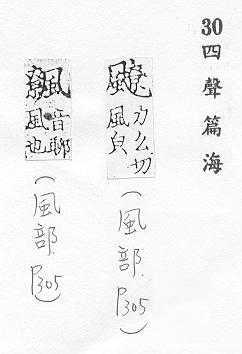 30四聲篇海
飉力么切
風皃
(風部.P305)
音聊
風也
(風部.P305)